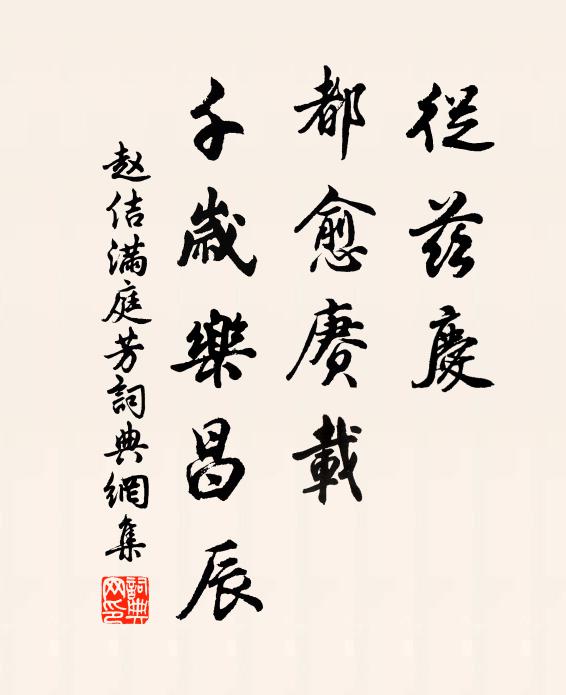 從茲慶
都愈賡載
千歲樂昌辰
赵佶满庭芳詞典網集
詞典网印